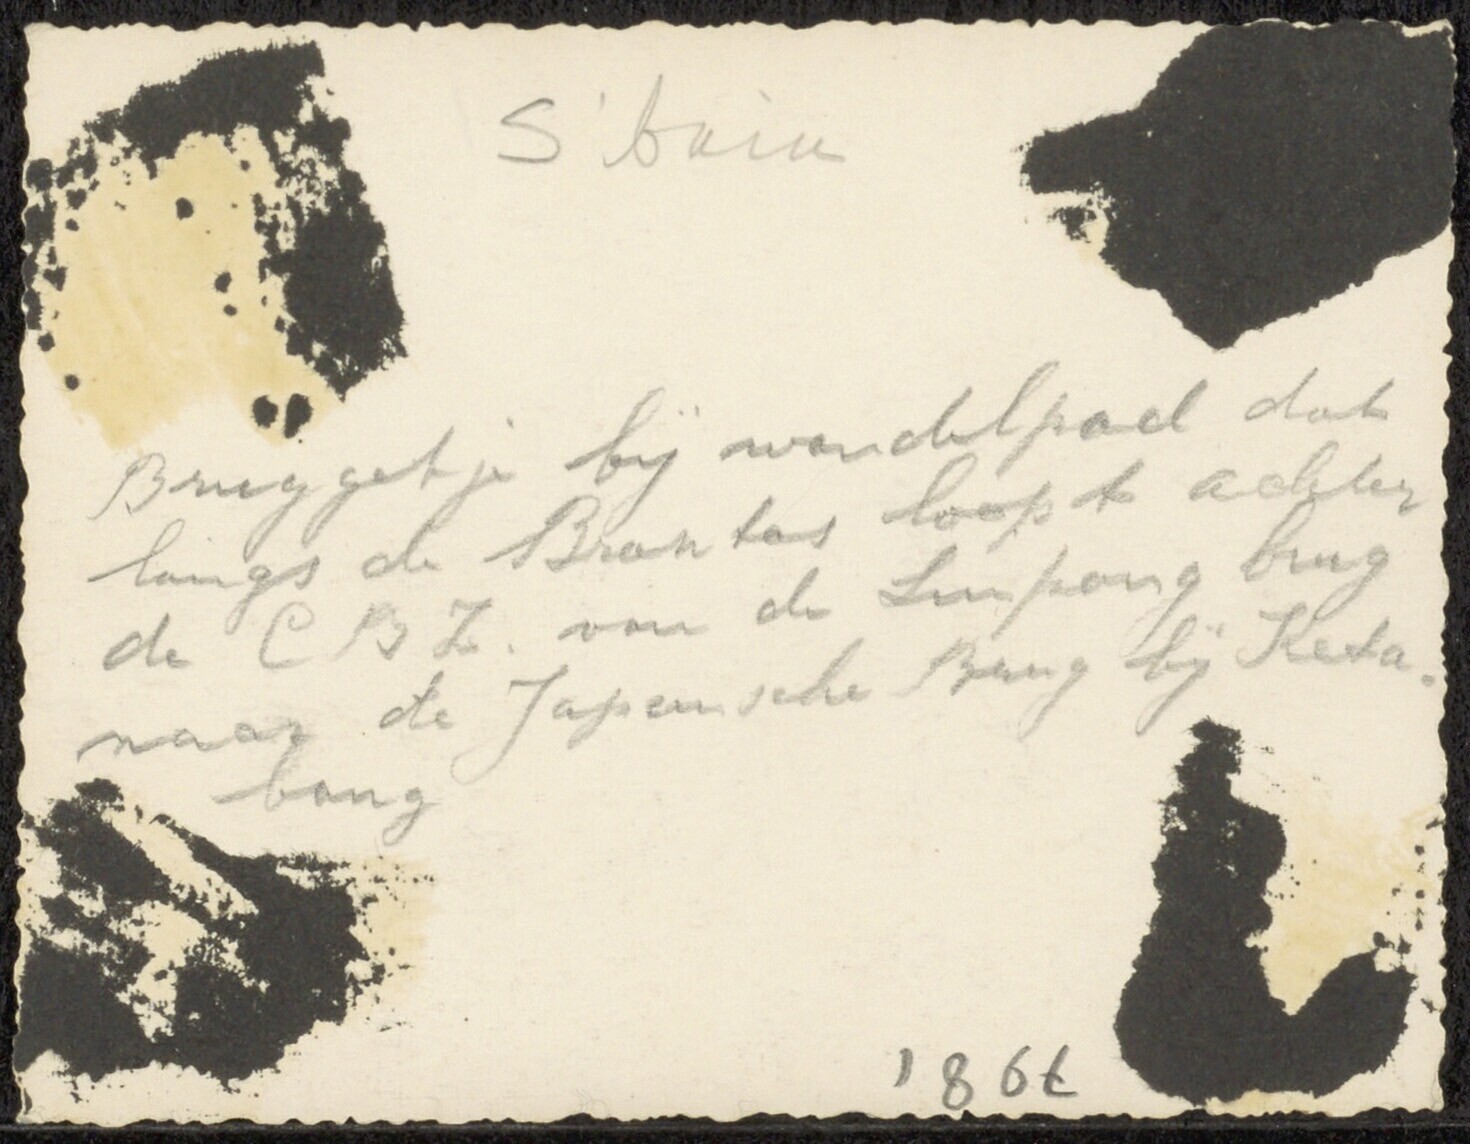 S'baia
Bruggetje bij wandelpad dat
langs de Brantas loopt achter
de C B Z. van de Simpang brug
naar de Japansche Brug bij Keta.
bang
186t